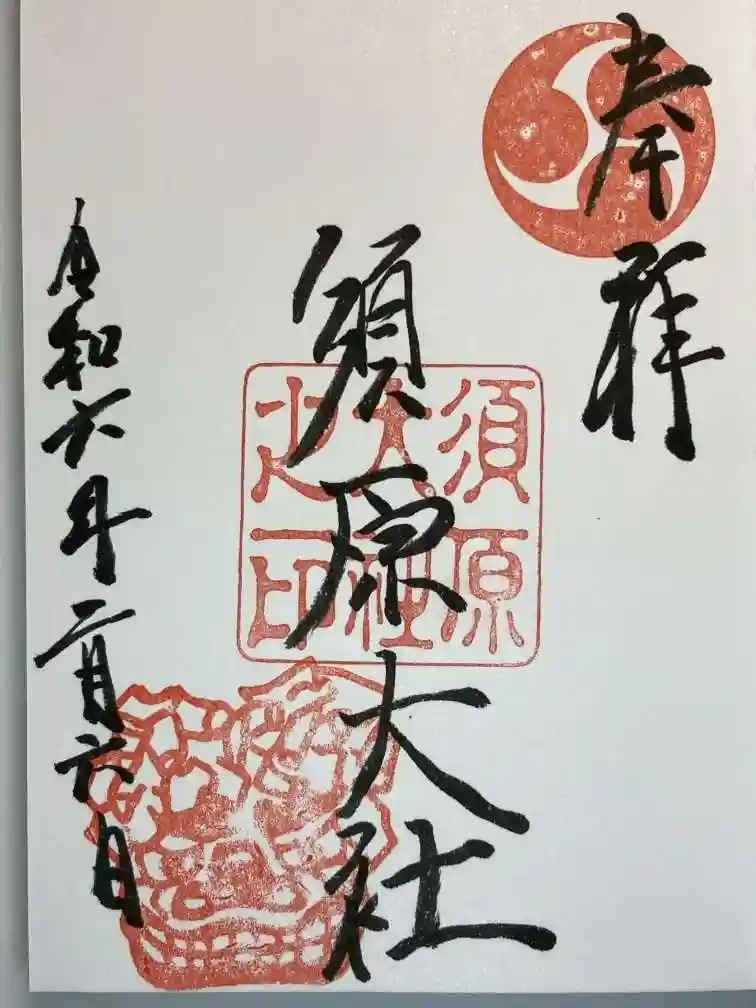 奉拝
須原大社
須原
大社
之印
令和六年二月六日